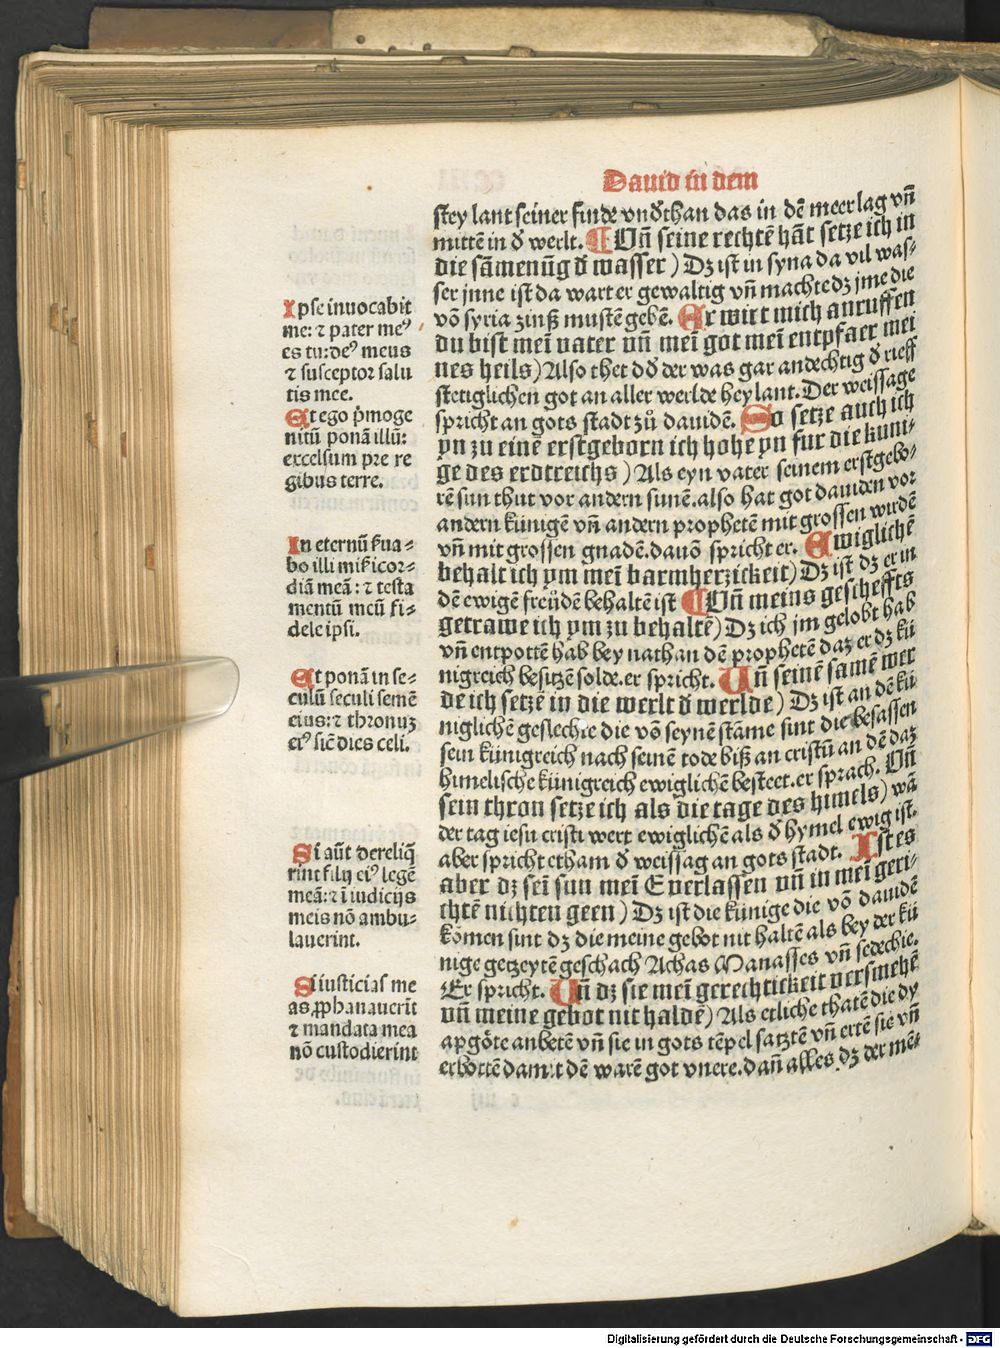 Dauid in dem
stey lant seiner finde vnd͛than das in dē meer lag vñ
mittē in d͛ werlt. Uñ seine rechtē hāt setze ich in
die sāmenūg d͛ wasser) Dz ist in syna da vil was⸗
ser jnne ist da wart er gewaltig vñ machte dz jme die
vō syria zinß mustē gebē. Er wirt mich anruffen
du bist meī vater vñ meī got meī entpfaer mei
nes heils) Also thet dd͛ der was gar andechtig d͛ rieff
stetiglichen got an aller werlde heylant. Der weissage
spricht an gots stadt zů dauidē. So setze auch ich
yn zu einē erstgeborn ich hohe yn fur die kuni⸗
ge des erdtreichs) Als eyn vater seinem erstgebo⸗
rē sun thut vor andern sunē. also hat got dauiden vor
andern künigē vñ andern prophetē mit grossen wirdē
vñ mit grossen gnadē. dauō spricht er. Ewiglichē
behalt ich ym meī barmherzickeit) Dz ist dz er in
dē ewigē freůdē behaltē ist Uñ meins gescheffts
getrawe ich ym zu behaltē) Dz ich jm gelobt hab
vñ entpottē hab bey nathan dē prophetē daz er dz kü
nigreich besitzē solde. er spricht. Uñ seinē samē wer
de ich setzē in die werlt d͛ werlde) Dz ist an dē kü
niglichē geslechte die vō seynē stāme sint die besassen
sein künigreich nach seinē tode biß an cristū an dē daz
himelische künigreich ewiglichē besteet. er sprach. Uñ
sein thron setze ich als die tage des himels) wā
der tag iesu cristi wert ewiglichē als d͛ hymel ewig ist.
aber spricht etham d͛ weissag an gots stadt. Ist es
aber dz seī sun meī E verlassen vñ in meī geri⸗
chtē nichten geen) Dz ist die künige die vō dauidē
komen sint dz die meine gebot nit haltē als bey der kü
nige getzeytē geschach Achas Manasses vñ sedechie.
Er spricht. Uñ dz sie meī gerechtickeit versmehē
vñ meine gebot nit haldē) Als etliche thatē die dy
apgöte anbetē vñ sie in gots tēpel satztē vñ ertē sie vñ
erbottē damit dē warē got vnere. dañ alles dz der mē⸗
Ipse inuocabit
me: ⁊ pater meꝰ
es tu: deꝰ meus
⁊ susceptor salu
tis mee.
Et ego p̄moge
nitū ponā illū:
excelsum pre re
gibus terre.
In eternū ẜua⸗
bo illi mīẜicor⸗
diā meā: ⁊ testa
mentū meū fi⸗
dele ipsi.
Et ponā in se⸗
culū seculi semē
eius: ⁊ thronuꝫ
eiꝰ sič dies celi.
Si aūt dereliq̄
rint filij eiꝰ legē
meā: ⁊ ī iudicijs
meis nō ambu⸗
lauerint.
Si iusticias me
as ꝓphanauerīt
⁊ mandata mea
nō custodierint
Digitalisierung gefördert durch die Deutsche Forschungsgemeinschaft - DFG